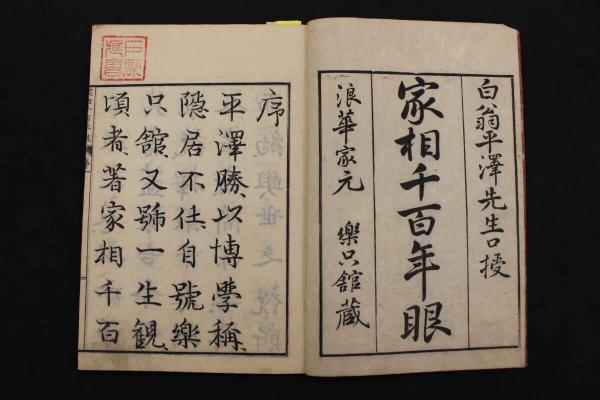 白翁平澤先生口授
家相千百年眼
浪華家元 樂只舘藏
序
平澤勝以博學稱
隠居不仕自號樂
只舘又號一生観
頃者著家相千百